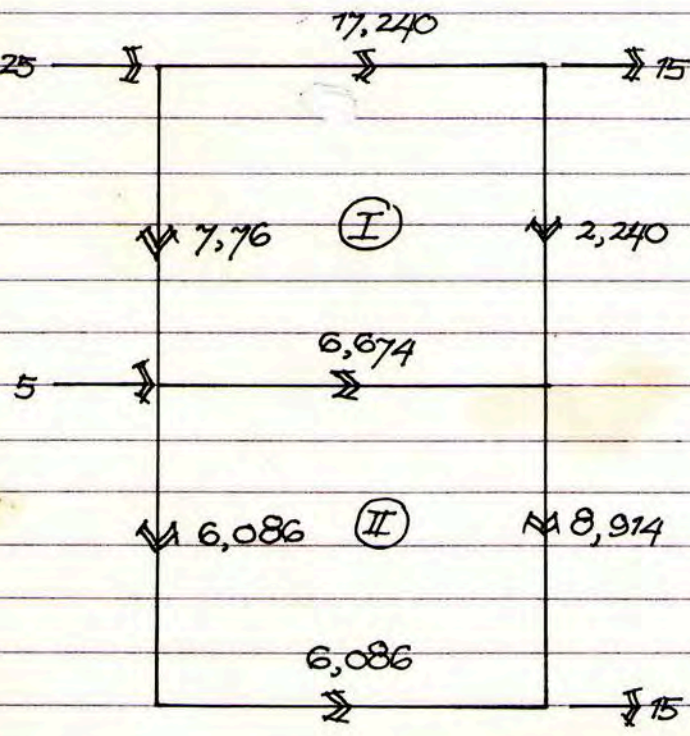 17,240
25 15
7,76 I 2,240
6,674
5
6,086 II 8,914
6,086
15